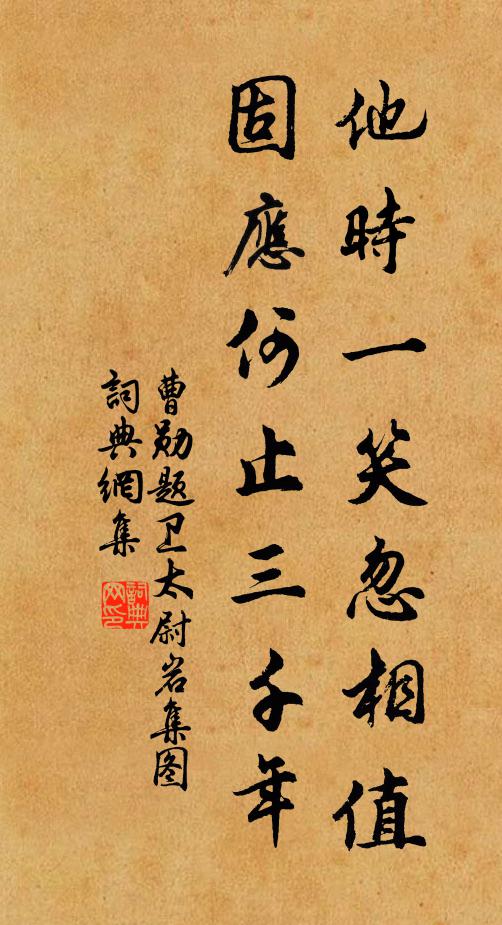 他時一笑忽相值
固應何止三千年
曹勋题卫太尉岩集图
詞典網集
詞典网印